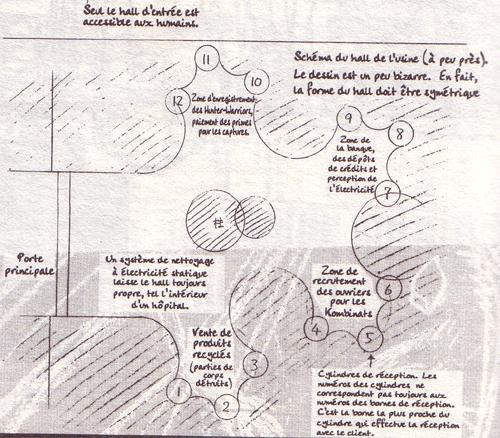 Seul le hall d'entrée est
accessible aux humains.
Schéma du hall de l'usine (à peu près).
Le dessin est un peu bizarre. En fait,
la forme du hall doit être symétrique
11
10
12
Zone d'enregistrement
des Hunter-Warriors,
paiement des primes
par les captures.
9
8
Zone de
la banque,
des dépôts
de crédits et
perception de
l'Électricité
7
#
Porte
principale
Un système de nettoyage
à Électricité statique
laisse le hall toujours
propre, tel l'intérieur
d'un hôpital.
Zone de
recrutement
des ouvriers
pour les
Kombinats
6
4
5
Vente de
produits
recyclés
(parties de
corps
détruits)
3
1
2
Cylindres de réception. Les
numéros des cylindres ne
correspondent pas toujours aux
numéros des bornes de réception.
C'est la borne la plus proche du
cylindre qui effectue la réception
avec le client.